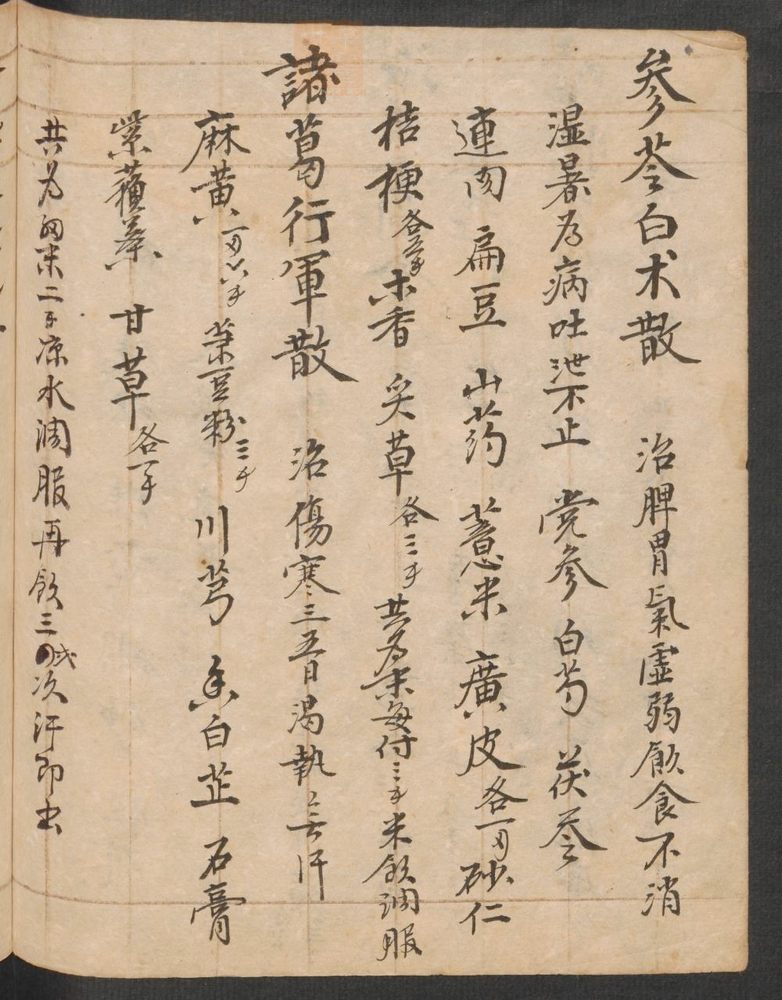 參苓白术散 治脾胃氣虛弱飲食不消
湿暑為病吐泄不止 党參 白芍 茯苓
連肉 扁豆 山药 薏米 廣皮各一両 砂仁
桔梗各五千 木香 炙草各三千 共為末每付三千米飲調服
諸葛行軍散 治傷寒三五日渴執無汗
麻黄一両六千 菉豆粉三千 川芎 香白芷 石膏
紫蘓葉 甘草各一千
共為細末二千凉水調服再飲三四次汗即出